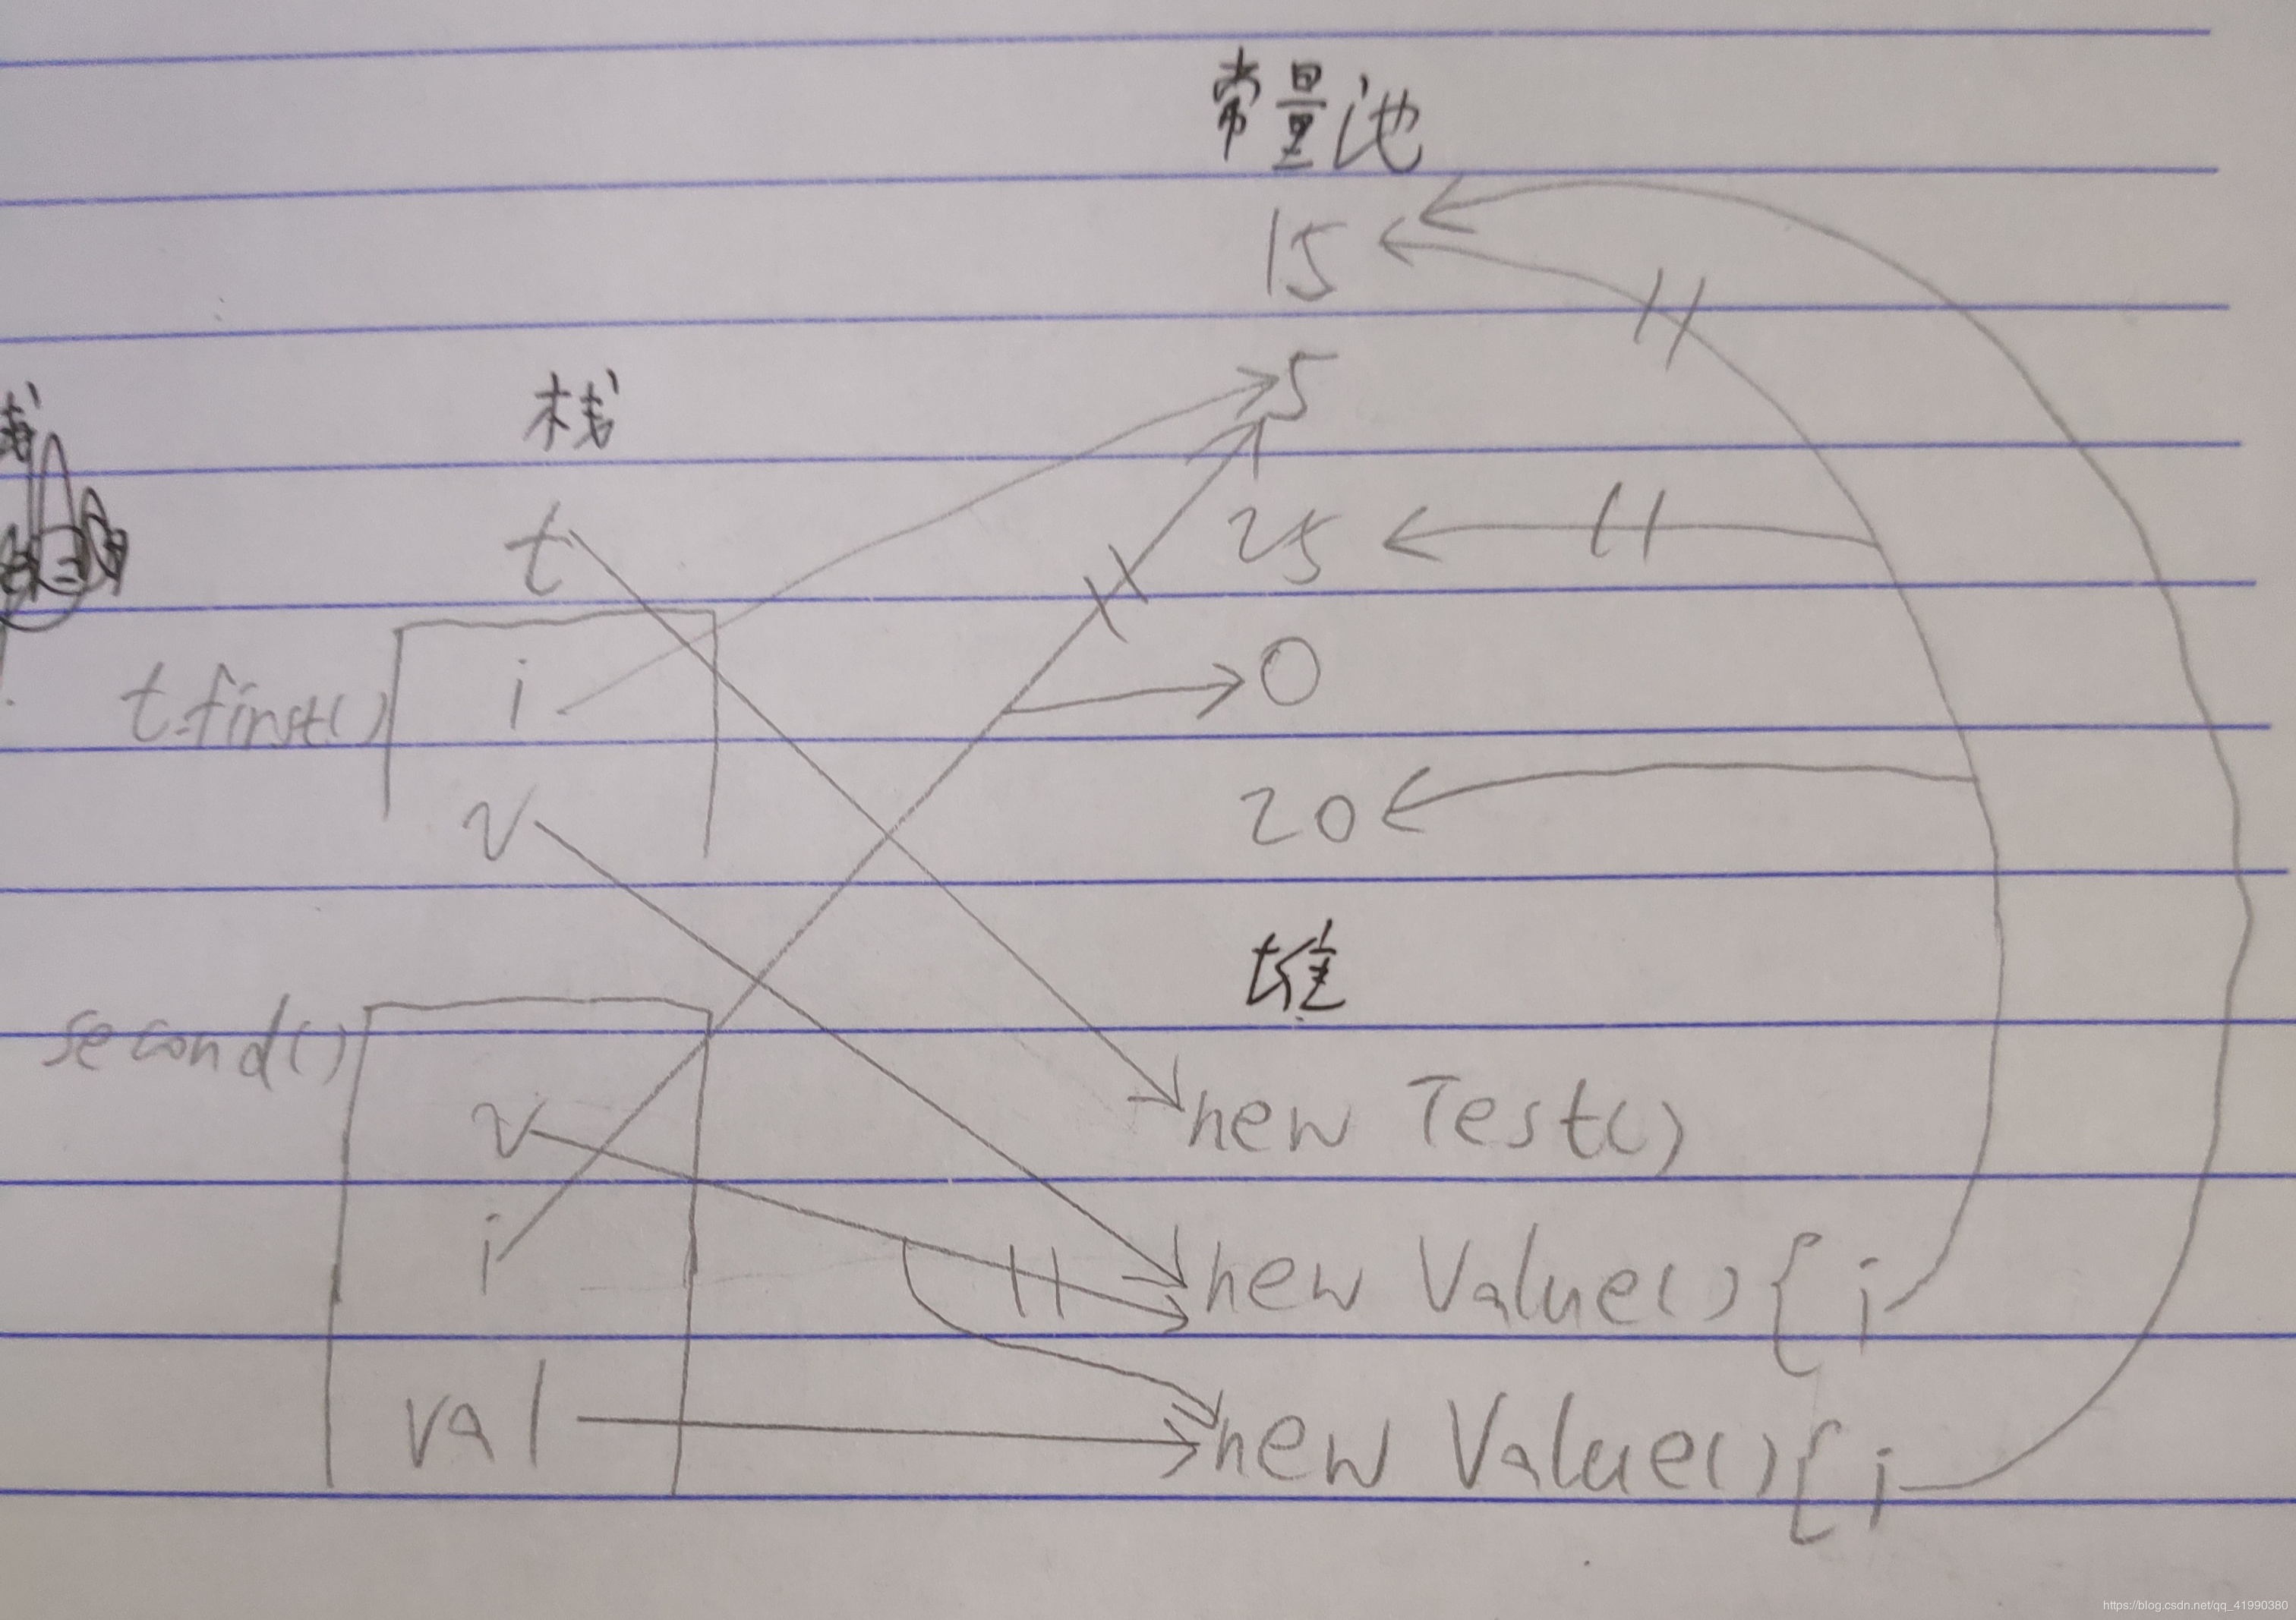 常量池
15
栈
5
t
25
t.first()
i
0
v
20
堆
second()
v
new Test()
i
new Value(){ i
val
new Value(){ i
https://blog.csdn.net/qq_41990380